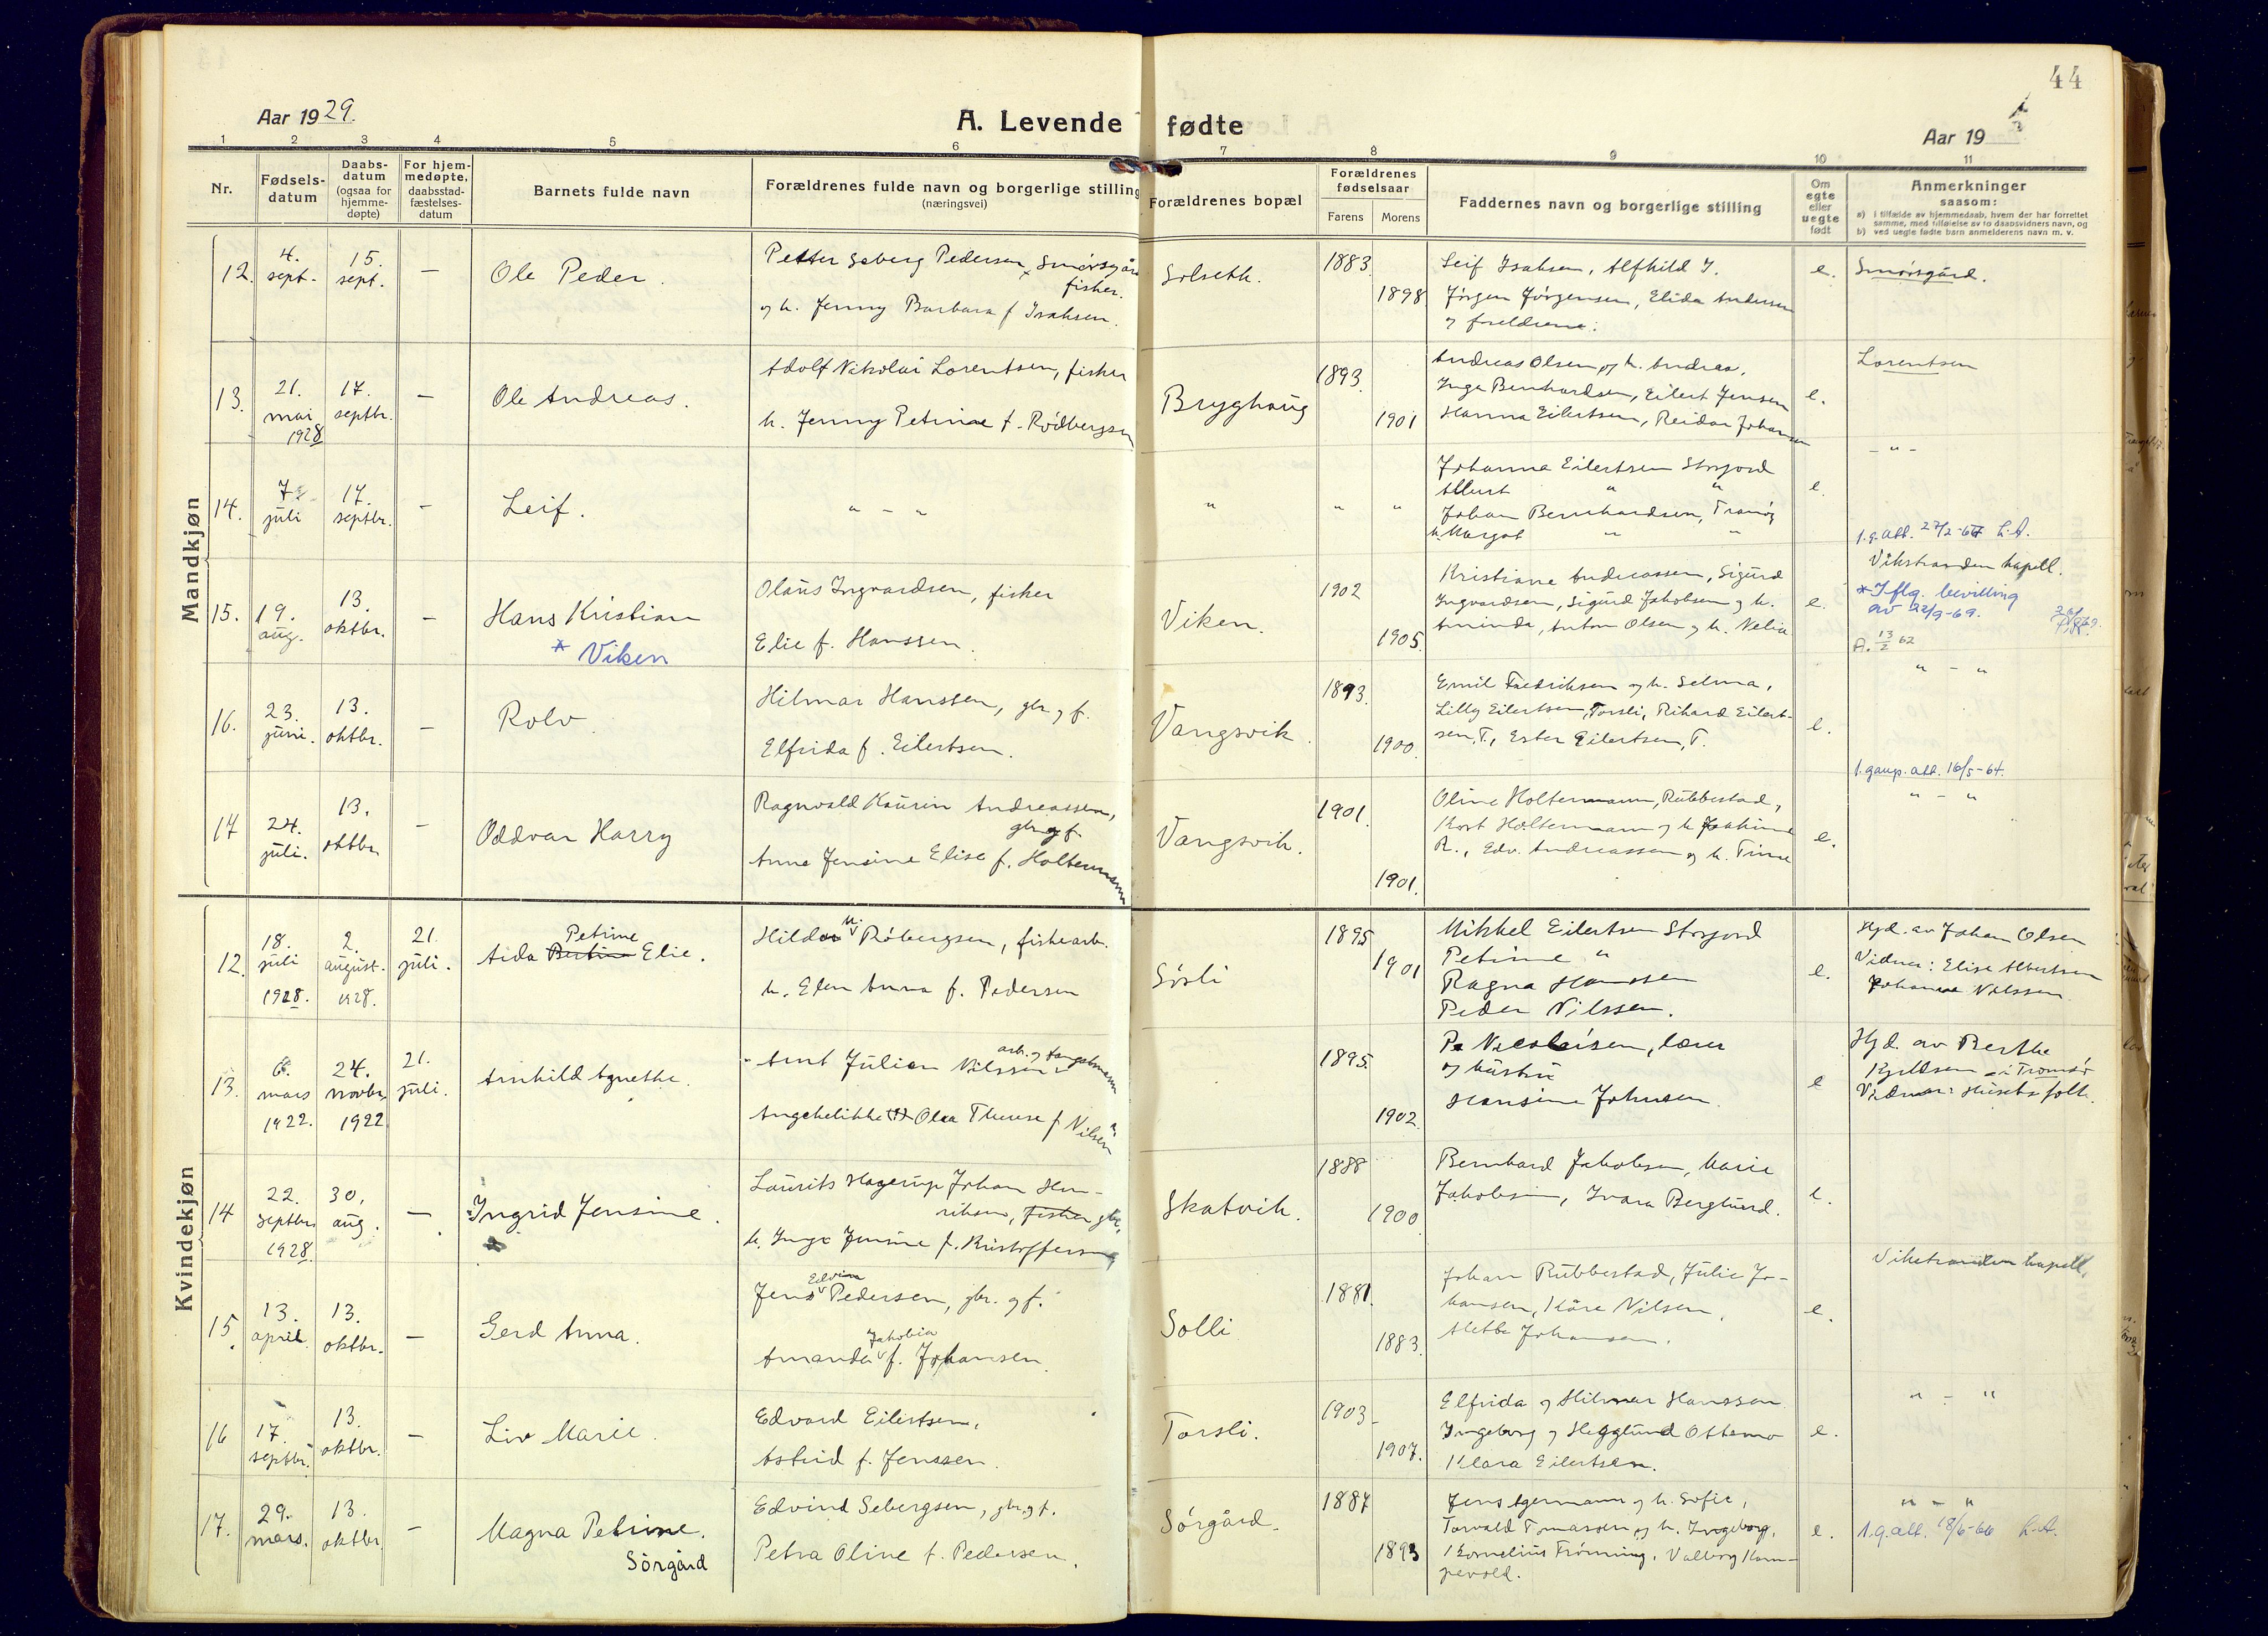 44
Aar 1929.
A. Levende fødte
Aar 19
1 2 3 4 5 6 7 8 9 10 11
Nr.
Fødsels-
datum
Daabs-
datum
(ogsaa for
hjemme-
døpte)
For hjem-
medøpte,
daabsstad-
fæstelses-
datum
Barnets fulde navn
Forældrenes fulde navn og borgerlige stilling
(næringsvei)
Forældrenes bopæl
Forældrenes
fødselsaar
Farens Morens
Faddernes navn og borgerlige stilling
Om
egte
eller
uegte
født
Anmerkninger
saasom:
a) i tilfælde av hjemmedaab, hvem der har forrettet
samme, med tilføielse av to daabsvidners navn, og
b) ved uegte fødte barn anmelderens navn m. v.
Mandkjøn
12. 4. sept. 15. sept. — Ole Peder.
Petter Seberg Pedersen, Smörsgård
fisher.
og h. Jenny Barbara f Isaksen.
Solseth. 1883 1898
Leif Isaksen, Alfhild I.
Jörgen Jörgensen, Elida Andersen
og foreldrene.
e. Smörsgård.
13. 21. mai 1928 17. septbr. — Ole Andreas.
Adolf Nikolai Lorentsen, fisker
h. Jenny Petrine f. Rödbergsen
Bryghaug 1893. 1901
Andreas Olsen og h. Andrea,
Inga Bernhardsen, Eilert Jensen
Hanna Eilertsen, Reidar Johansen
e. Lorentsen
14. 7. juli 17. septbr. — Leif.
" - "
" " "
Johanna Eilertsen Storjord
Albert " "
Johan Bernhardsen, Tranöy
h. Margot " "
e. - " -
1.g. att. 27/2-67 L.A.
15. 19. aug. 13. oktbr. — Hans Kristian
* Viken
Olaus Ingvardsen, fisker
Elie f. Hanssen.
Viken. 1902 1905.
Kristiane Andreassen, Sigurd
Ingvardsen, Sigurd Jakobsen og h.
Aminda, Anton Olsen og h. Nelie
e. Vikstranden kapell.
* Iflg. bevilling
av 22/9-69.
A. 13/2 62
16. 23. juni. 13. oktbr. — Rolv
Hilmar Hanssen, gbr. og f.
Elfrida f. Eilertsen.
Vangsvik. 1893. 1900.
Emil Fredriksen og h. Selma,
Lilly Eilertsen, Torsli, Rikard Eilert-
sen, T., Ester Eilertsen, T.
e. " - "
1.gangs. att. 16/5-64.
17 24. juli. 13. oktbr. — Oddvar Harry
Ragnvald Kaurin Andreassen,
gbr og f.
Anne Jensine Elise f. Holtermann
Vangsvik. 1901. 1901.
Oline Holtermann, Rubbestad,
Kort Holtermann og h. Joakime
R., Edv. Andreassen og h. Trine
e. " - "
Kvindekjøn
12. 18. juli 1928. 2. august. 1928. 21. juli.
Petrine
Aida Bertine Elie.
Hildor N. Röbergsen, fiskearb.
h. Elen Anna f. Pedersen
Sörli 1895 1901
Mikkel Eilertsen Storjord
Petrine "
Ragna Hanssen
Peder Nilssen.
e. Hjd. av Johan Olsen
Vidner: Elise Albertsen
Johanne Nilssen.
13. 6. mars 1922. 24. novbr. 1922 21. juli.
Arnhild Agnethe.
Arnt Julian Nilssen arb. og fangstmann
Angehelikke Olea Therese f Nilsen
1895. 1902.
Nicolaisen, lærer
og hustru
Hansine Johnsen.
e Hjd. av Berthe
Kjeldsen i Tromsö
Vidner: Husets folk.
14 22. septbr. 1928. 30. aug. — Ingrid Jensine.
Laurits Hagerup Johan Hen-
riksen, fisker gbr.
h. Inga Jensine f. Kristoffersen
Skatvik. 1888 1900
Bernhard Jakobsen, Marie
Jakobsen, Ivara Berglund.
e.
15. 13. april 13. oktbr. — Gerd Anna.
Edvin
Jens Pedersen, gbr. og f.
Jakobia
Amanda f. Johansen.
Solli 1881. 1883.
Johan Rubbestad, Julie Jo-
hansen, Kåre Nilsen,
Alette Johansen.
e. Vikstranden kapell.
16 17. septbr. 13. oktbr. — Liv Marie.
Edvard Eilertsen,
Astrid f. Jenssen.
Torsli. 1903 1907.
Elfrida og Hilmar Hanssen.
Ingeborg og Hegglund Ottemo
Klara Eilertsen.
e. " - "
17. 29. mars. 13. oktbr. — Magna Petrine.
Sörgård
Edvind Sebergsen, gbr. og f.
Petra Oline f. Pedersen.
Sörgård. 1887 1893
Jens Agermann og h. Sofie,
Torvald Tomassen og h. Ingeborg,
Kornelius Frönning, Valborg Kam-
pevold.
e. " - "
1.g. att. 18/6-66 L.A.